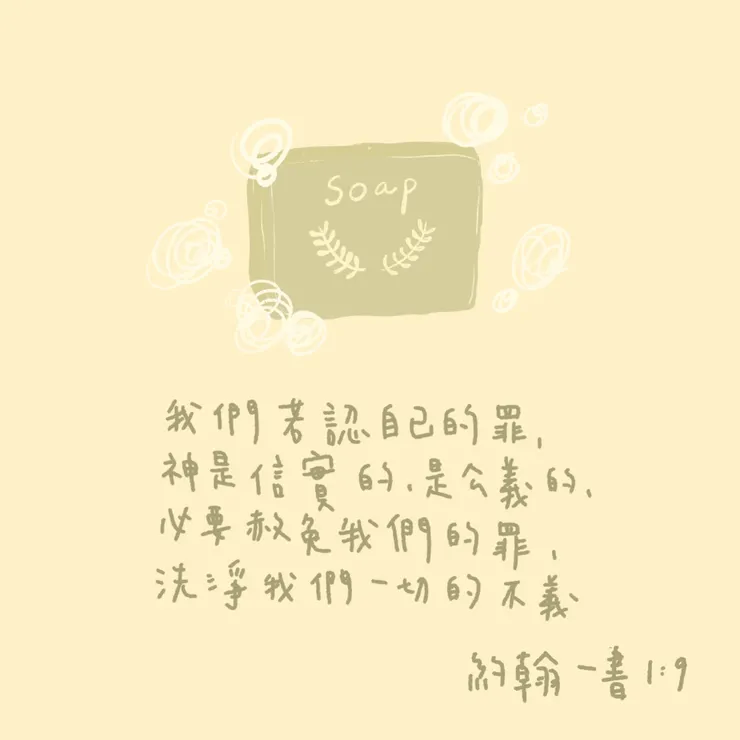 Soap
我們若認自己的罪,
神是信實的,是公義的,
必要赦免我們的罪,
洗淨我們一切的不義
約翰一書1:9